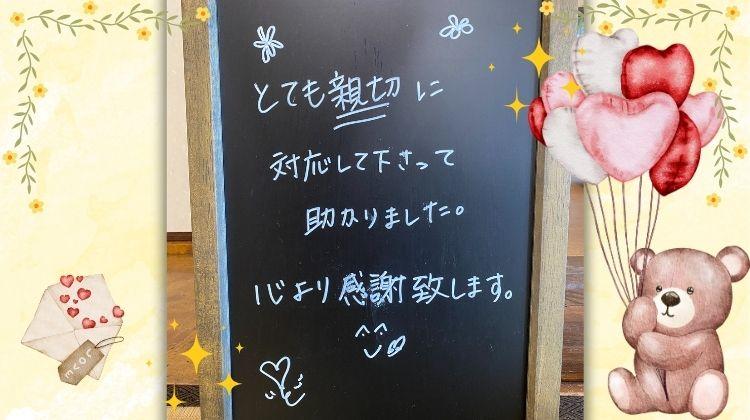 とても親切に
対応して下さって
助かりました。
心より感謝致します。
LOVE